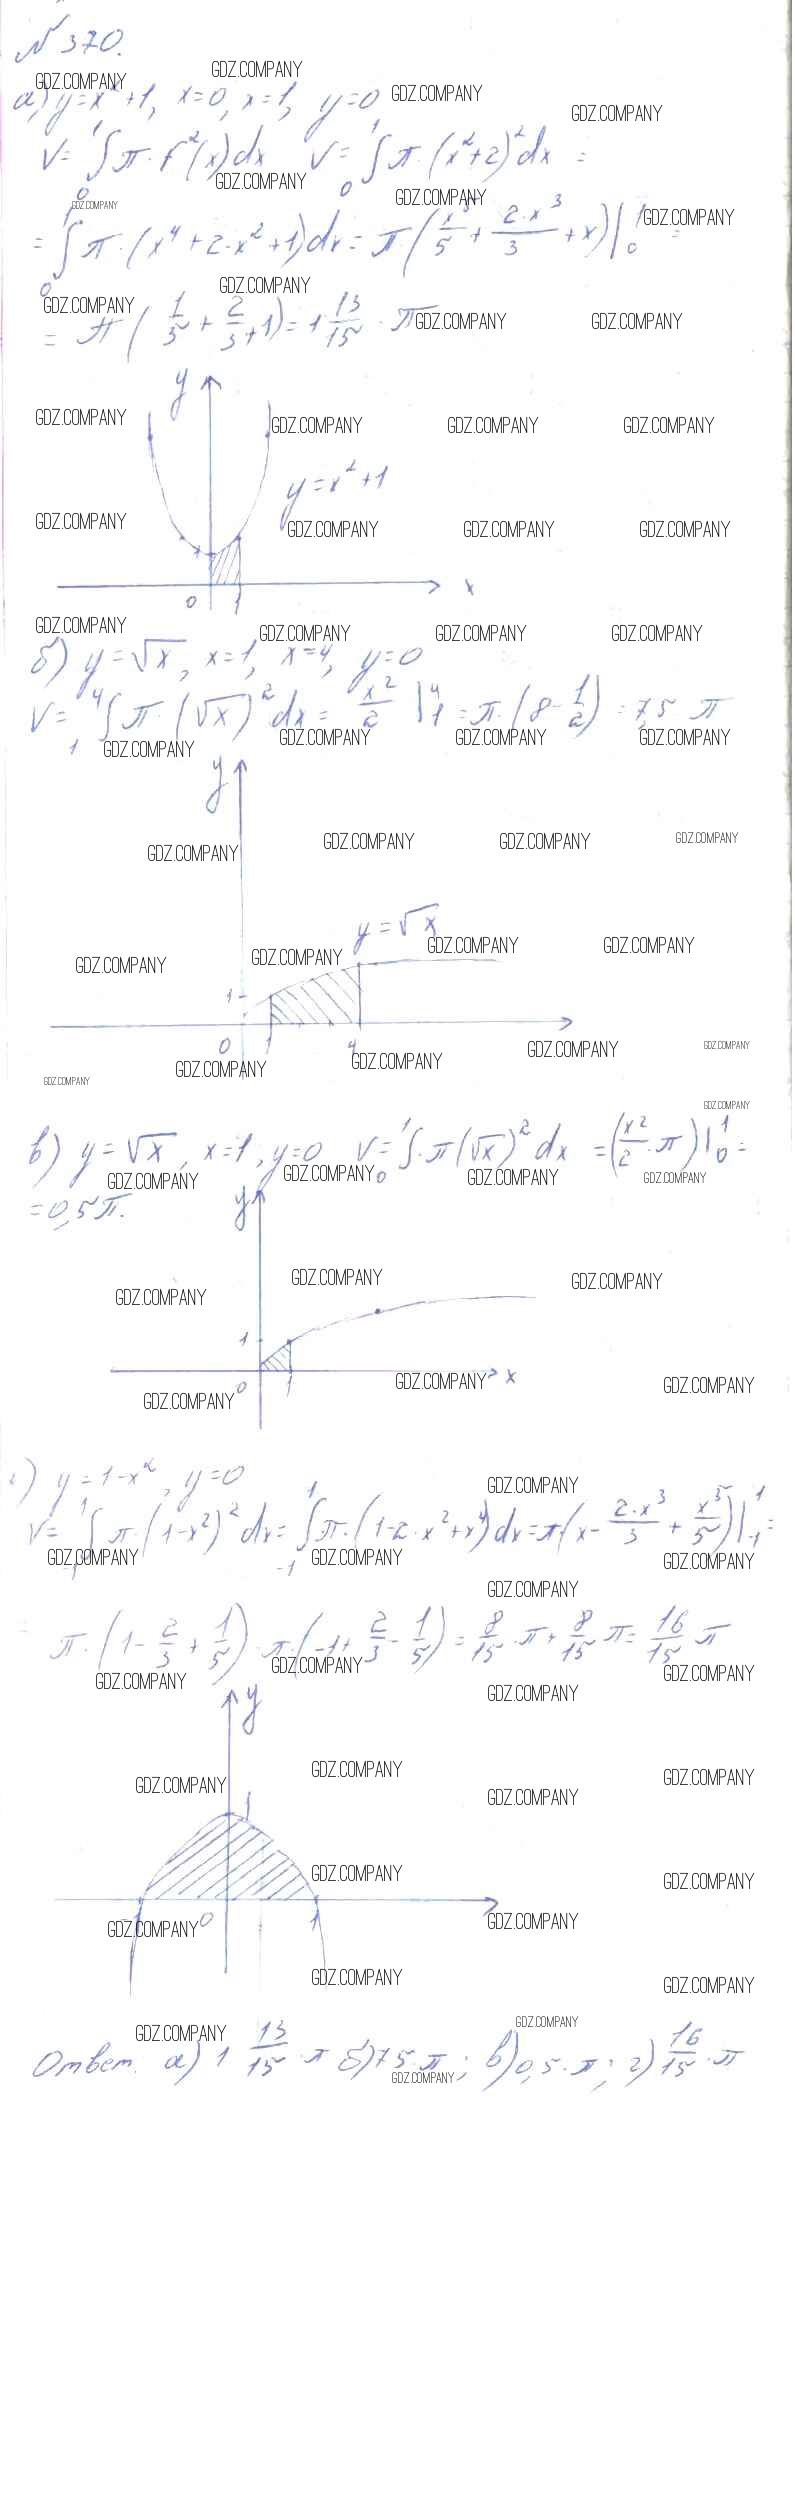 № 370.
а) y=x²+1, x=0, x=1, y=0
V= ₀∫¹ π·f²(x)dx V= ₀∫¹ π·(x²+2)²dx =
= ₀∫¹ π·(x⁴+2·x²+1)dx = π(x⁵/5 + 2·x³/3 + x)|₀¹ =
= π(1/5 + 2/3 + 1) = 1 13/15 · π
y
y=x²+1
0 1 x
б) y=√x, x=1, x=4, y=0
V= ₁∫⁴ π·(√x)²dx = x²/2 |₁⁴ = π·(8-1/2) = 7,5 π
y
y=√x
1
0 1 4
в) y=√x, x=1, y=0 V= ₀∫¹·π(√x)²dx =(x²/2·π)|₀¹ =
=0,5π.
y
1
0 1 x
г) y=1-x², y=0
V= ₋₁∫¹ π·(1-x²)²dx= ₋₁∫¹ π·(1-2·x²+x⁴)dx=π·(x- 2·x³/3 + x⁵/5)|₋₁¹ =
= π·(1- 2/3 + 1/5) · π·(-1+ 2/3 - 1/5) = 8/15·π+ 8/15 π= 16/15 π
y
1
-1 0 1
Ответ. а) 1 13/15·π б)7,5·π; в)0,5·π; г) 16/15·π
GDZ.COMPANY